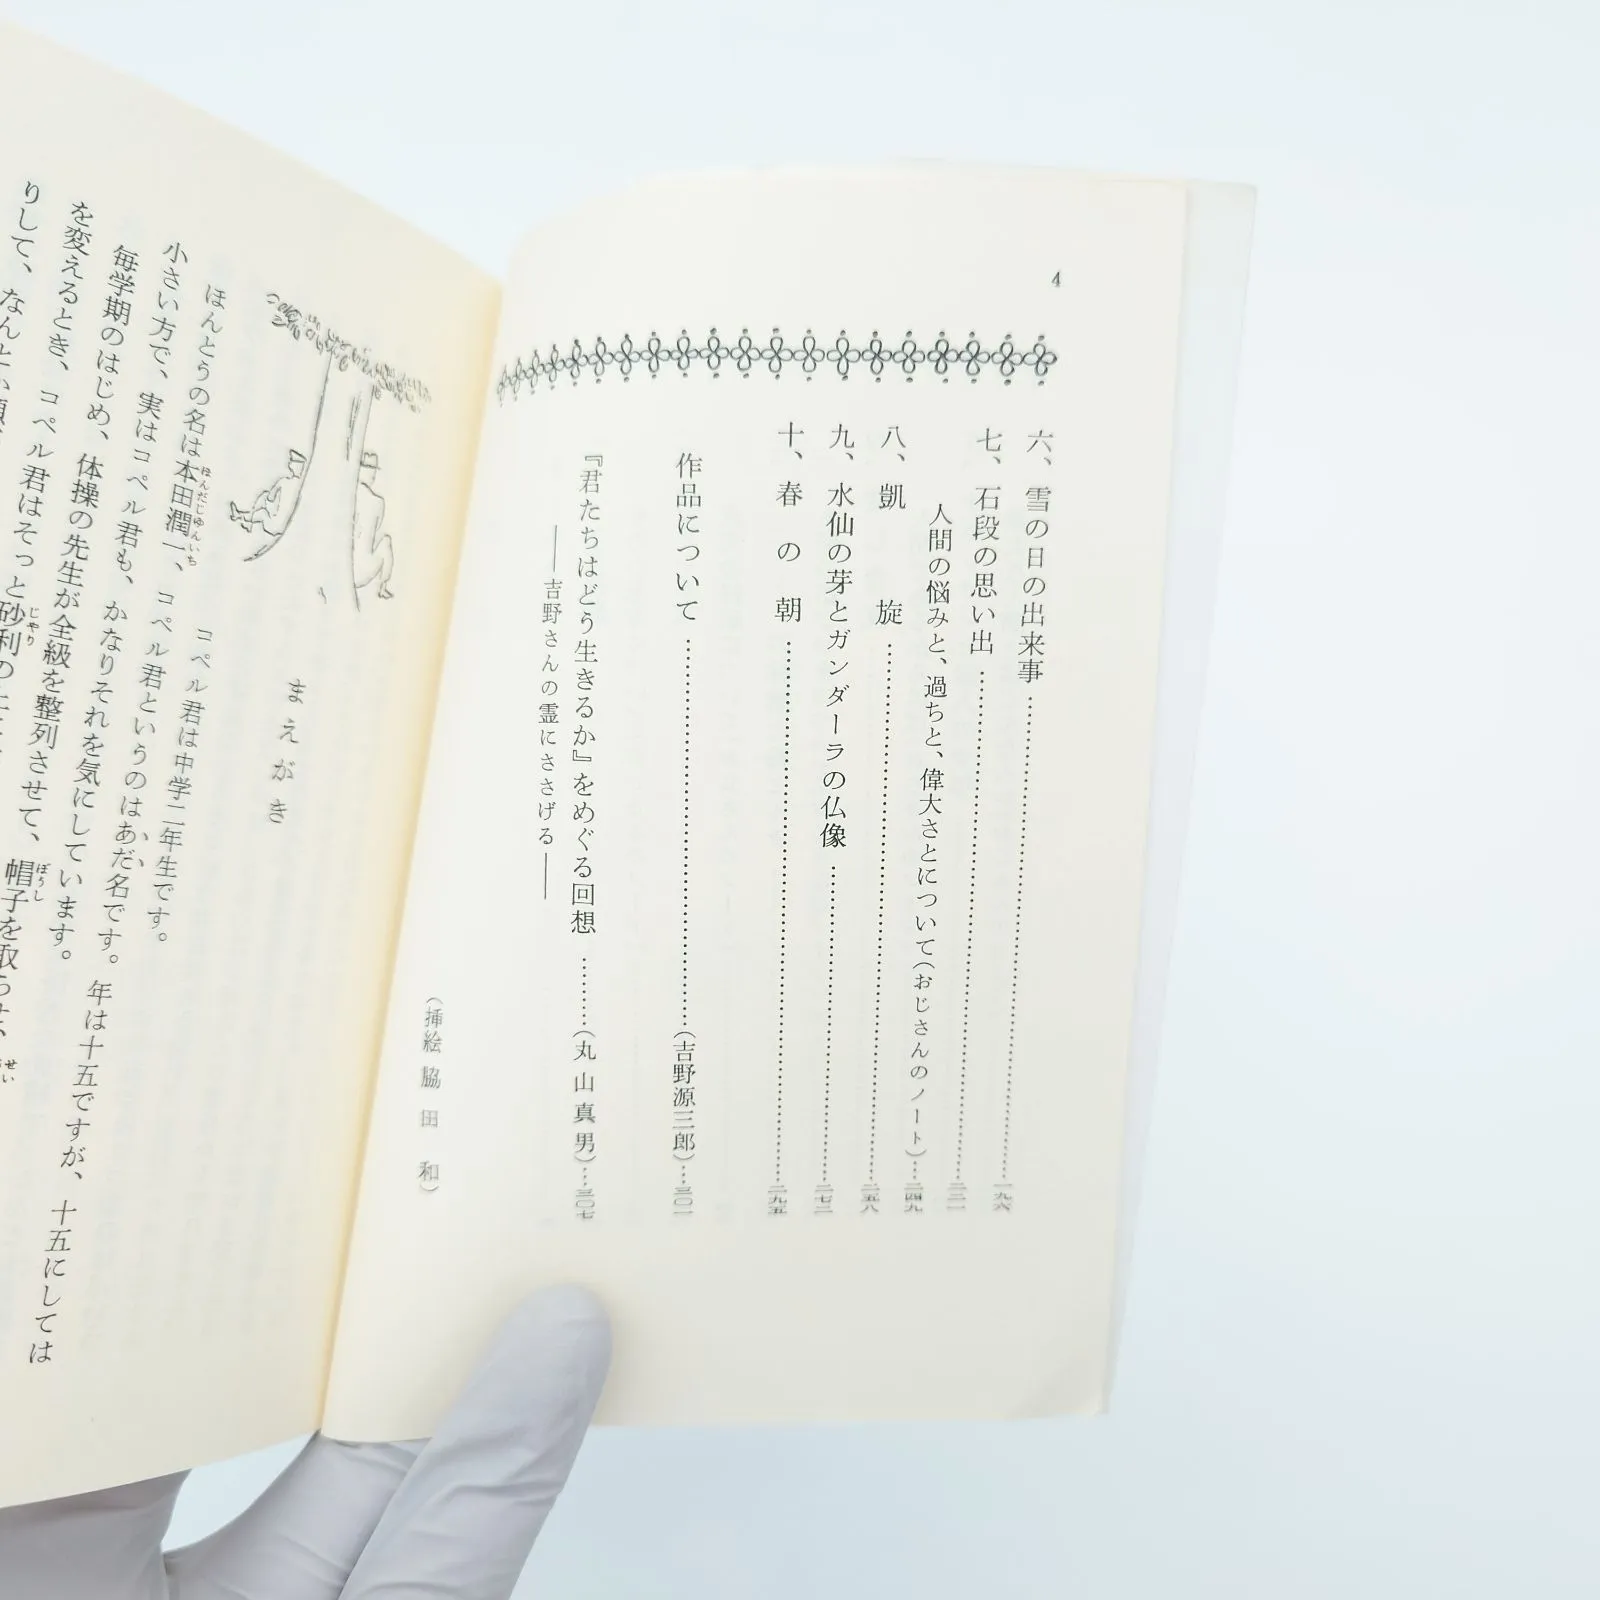 4
六、雪の日の出来事…………一九六
七、石段の思い出…………二二一
人間の悩みと、過ちと、偉大さとについて(おじさんのノート)…二四九
八、凱旋…………二五八
九、水仙の芽とガンダーラの仏像…………二七三
十、春の朝…………二九五
作品について…………(吉野源三郎)…三〇一
『君たちはどう生きるか』をめぐる回想…………(丸山真男)…三〇七
――吉野さんの霊にささげる――
(挿絵 脇田 和)
まえがき
コペル君は中学二年生です。
ほんとうの名は本田潤一、コペル君というのはあだ名です。年は十五ですが、十五にしては
小さい方で、実はコペル君も、かなりそれを気にしています。
毎学期のはじめ、体操の先生が全級を整列させて、帽子を取らせ、
を変えるとき、コペル君はそっと砂利の
りして、なんと